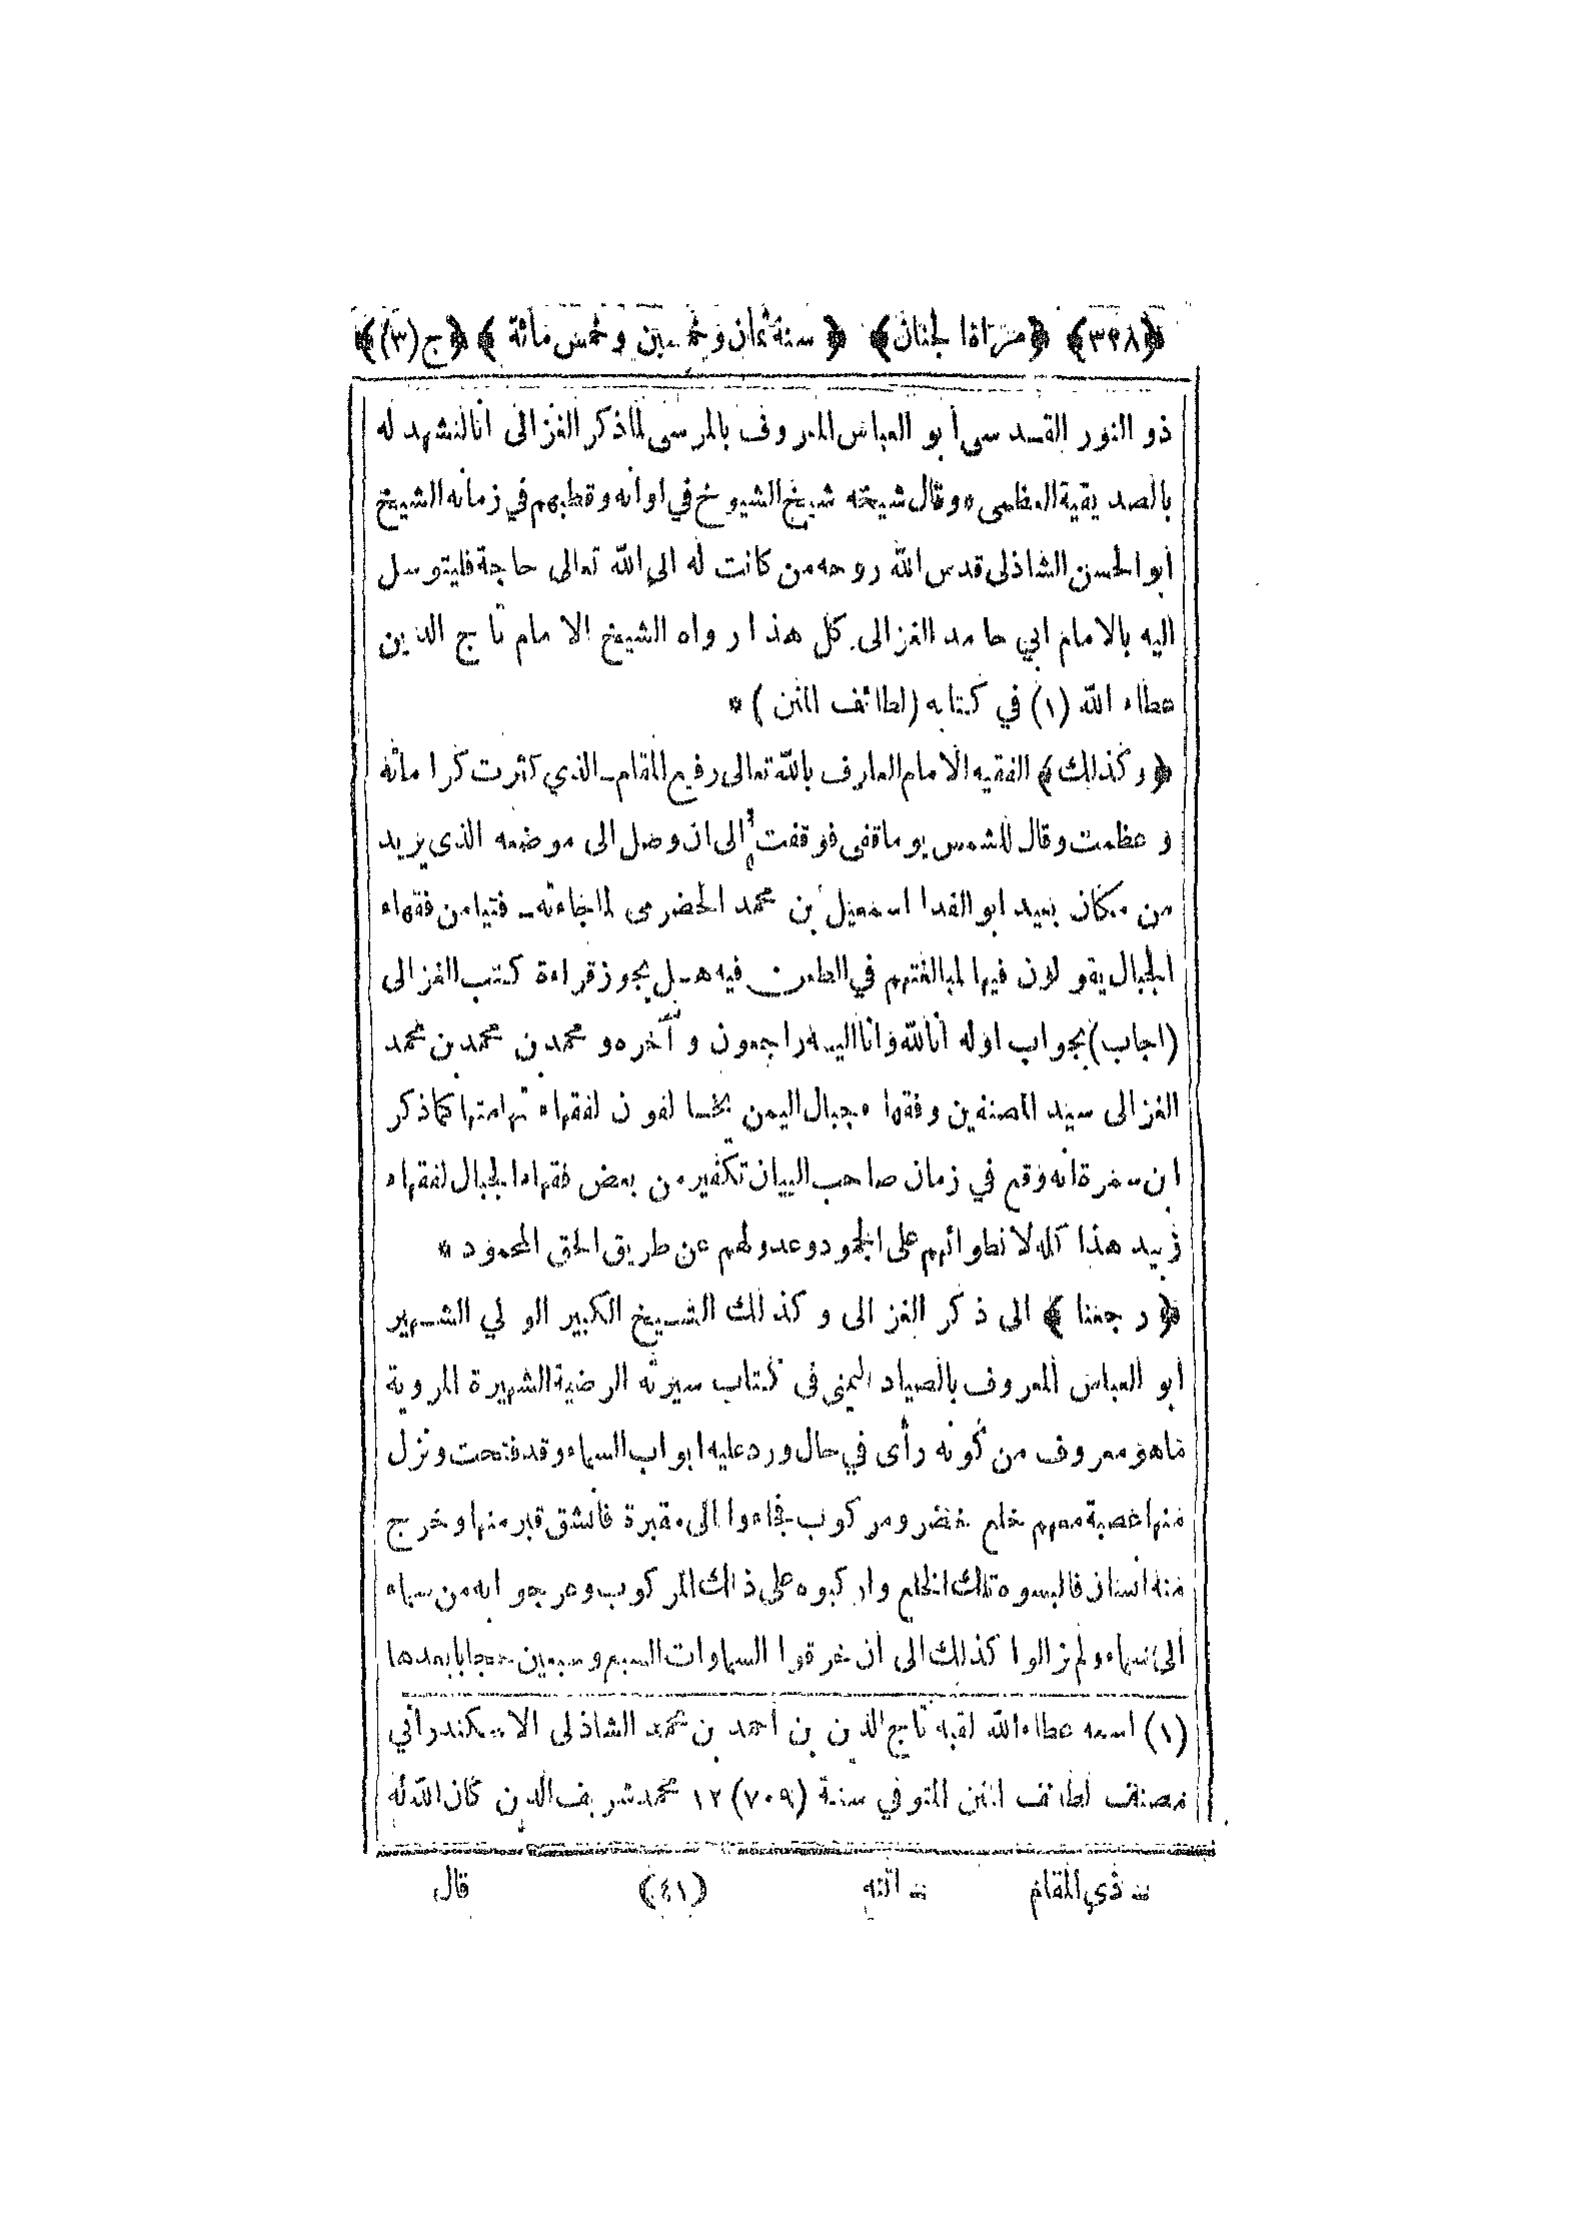 ﴿(٣٢٨)﴾ ﴿مرآة الجنان﴾ ﴿سنة ثمان وخمسين وخمس مائة﴾ ﴿ج (٣)﴾
ذو النور القدسى أبو العباس المعروف بالمرسى لما ذكر الغزالى انا لنشهد له
بالصديقية العظمى * وقال شيخه شيخ الشيوخ في اوانه وقطبهم في زمانه الشيخ
أبو الحسن الشاذلى قدس الله روحه من كانت له الى الله تعالى حاجة فليتوسل
اليه بالامام ابي حامد الغزالى كل هذا رواه الشيخ الامام تاج الدين
عطاء الله (١) في كتابه (لطائف المنن) *
﴿وكذلك﴾ الفقيه الامام العارف بالله تعالى رفيع المقام الذي كثرت كراماته
وعظمت وقال للشمس يوما قفى فوقفت الى ان وصل الى موضعه الذى يريد
من مكان بعيد ابو الفدا اسمعيل بن محمد الحضرمى لما جاءته فتيا من فقهاء
الجبال يقولون فيها لمبالغتهم في الطعن فيه هل يجوز قراءة كتب الغزالى
(اجاب) بجواب اوله انا لله وانا اليه راجعون وآخره و محمد بن محمد بن محمد
الغزالى سيد المصنفين وفقهاء جبال اليمن يخالفون لفقهاء تهامتها كما ذكر
ابن سمرة انه وقع في زمان صاحب البيان تكفير من بعض فقهاء الجبال لفقهاء
زبيد هذا كله لانطوائهم على الجمود وعدولهم عن طريق الحق المحمود *
﴿رجعنا﴾ الى ذكر الغزالى وكذلك الشيخ الكبير الولي الشهير
أبو العباس المعروف بالصياد اليمنى فى كتاب سيرته الرضية الشهيرة المروية
ما هو معروف من كونه رأى في حال ورد عليه ابواب السماء وقد فتحت ونزل
منها عصبة معهم خلع خضر ومركوب فجاءوا الى مقبرة فانشق قبر منها وخرج
منه انسان فالبسوه تلك الخلع واركبوه على ذلك المركوب وعرجوا به من سماء
الى سماء ولم يزالوا كذلك الى ان خرقوا السماوات السبع وسبعين حجابا بعدها
(١) اسمه عطاء الله لقبه تاج الدين بن احمد بن محمد الشاذلى الاسكندراني
مصنف لطائف المنن المتوفي سنة (٧٠٩) ١٢ محمد شريف الدين كان الله له
ن ذي المقام ن اتته (٤١) قال